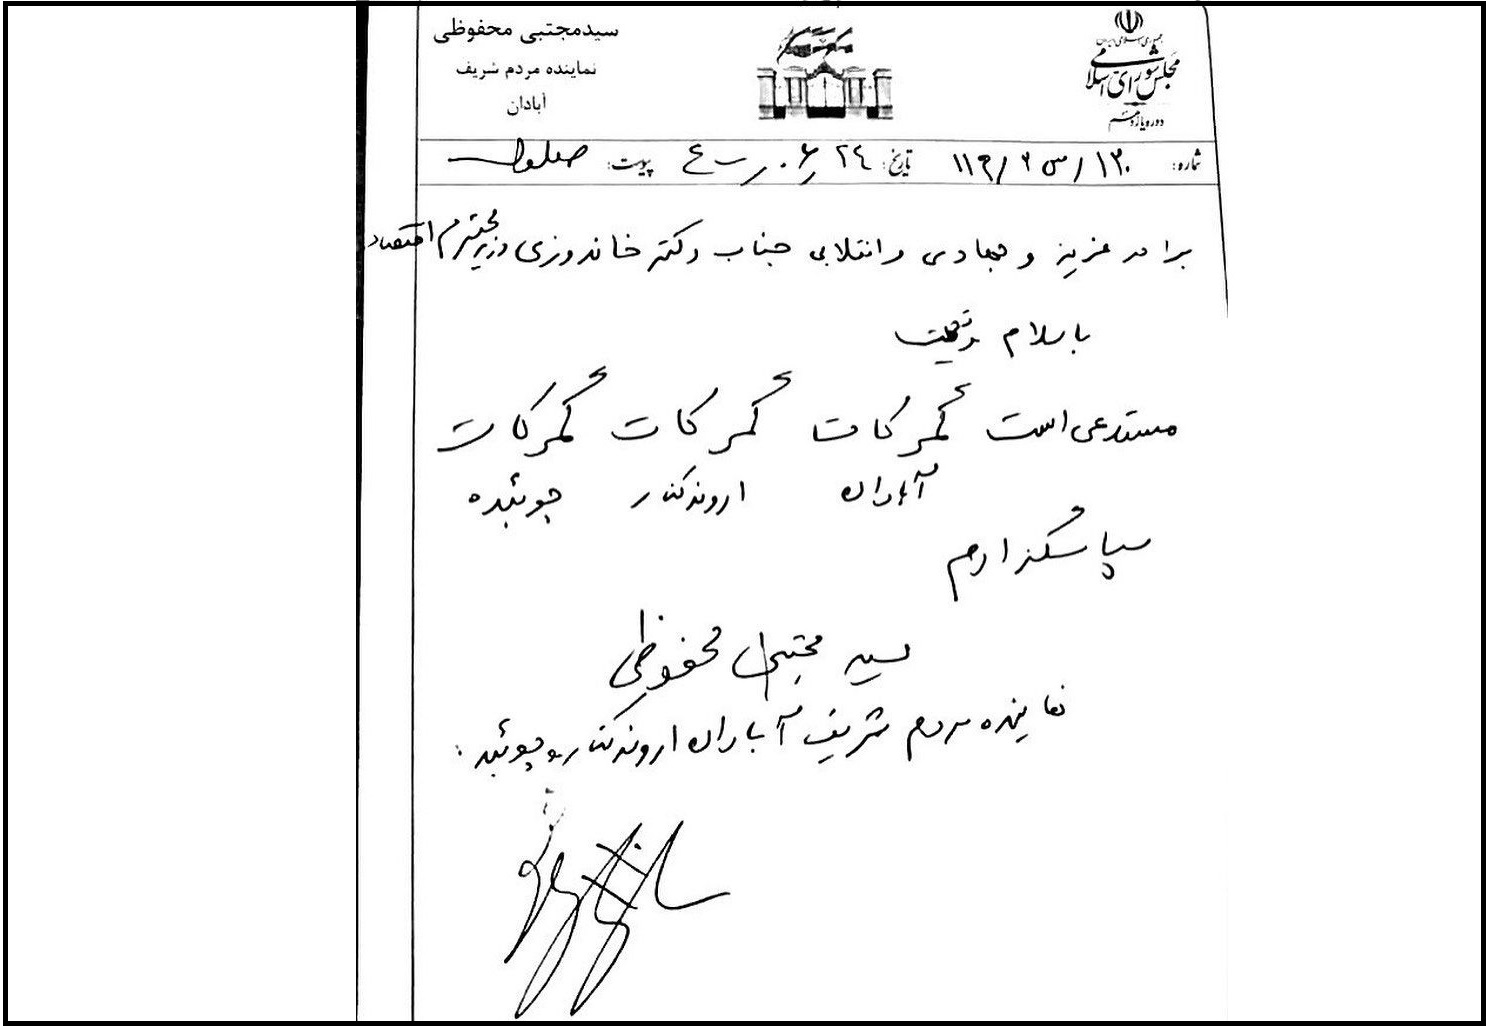 جمهوری اسلامی ایران
مجلس شورای اسلامی
دوره یازدهم
سیدمجتبی محفوظی
نماینده مردم شریف
آبادان
شماره: ۱۳۰/ س تاریخ: ۲۴ پیوست:
برادر عزیز و جهادی و انقلابی جناب دکتر خاندوزی وزیر محترم اقتصاد
باسلام
مستدعی است گمرکات گمرکات گمرکات
آبادان اروندکنار چوئبده
سپاسگزارم
سید مجتبی محفوظی
نماینده مردم شریف آبادان اروندکنار و چوئبده